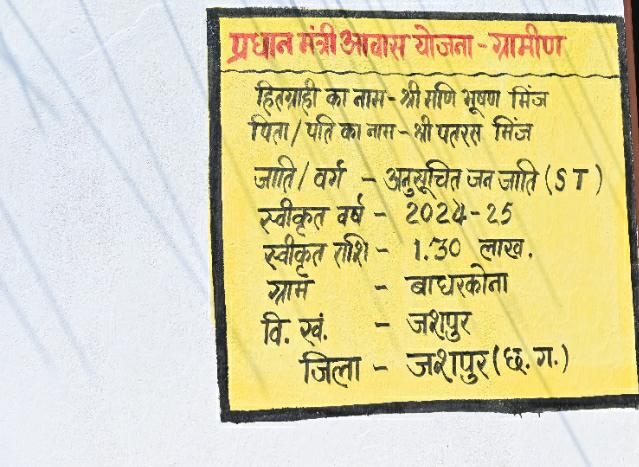 प्रधान मंत्री आवास योजना - ग्रामीण
हितग्राही का नाम - श्री मणि भूषण मिंज
पिता / पति का नाम - श्री पतरस मिंज
जाति / वर्ग - अनुसूचित जन जाति (ST)
स्वीकृत वर्ष - 2024-25
स्वीकृत राशि - 1.30 लाख.
ग्राम - बाघरकोना
वि. खं. - जशपुर
जिला - जशपुर (छ. ग.)